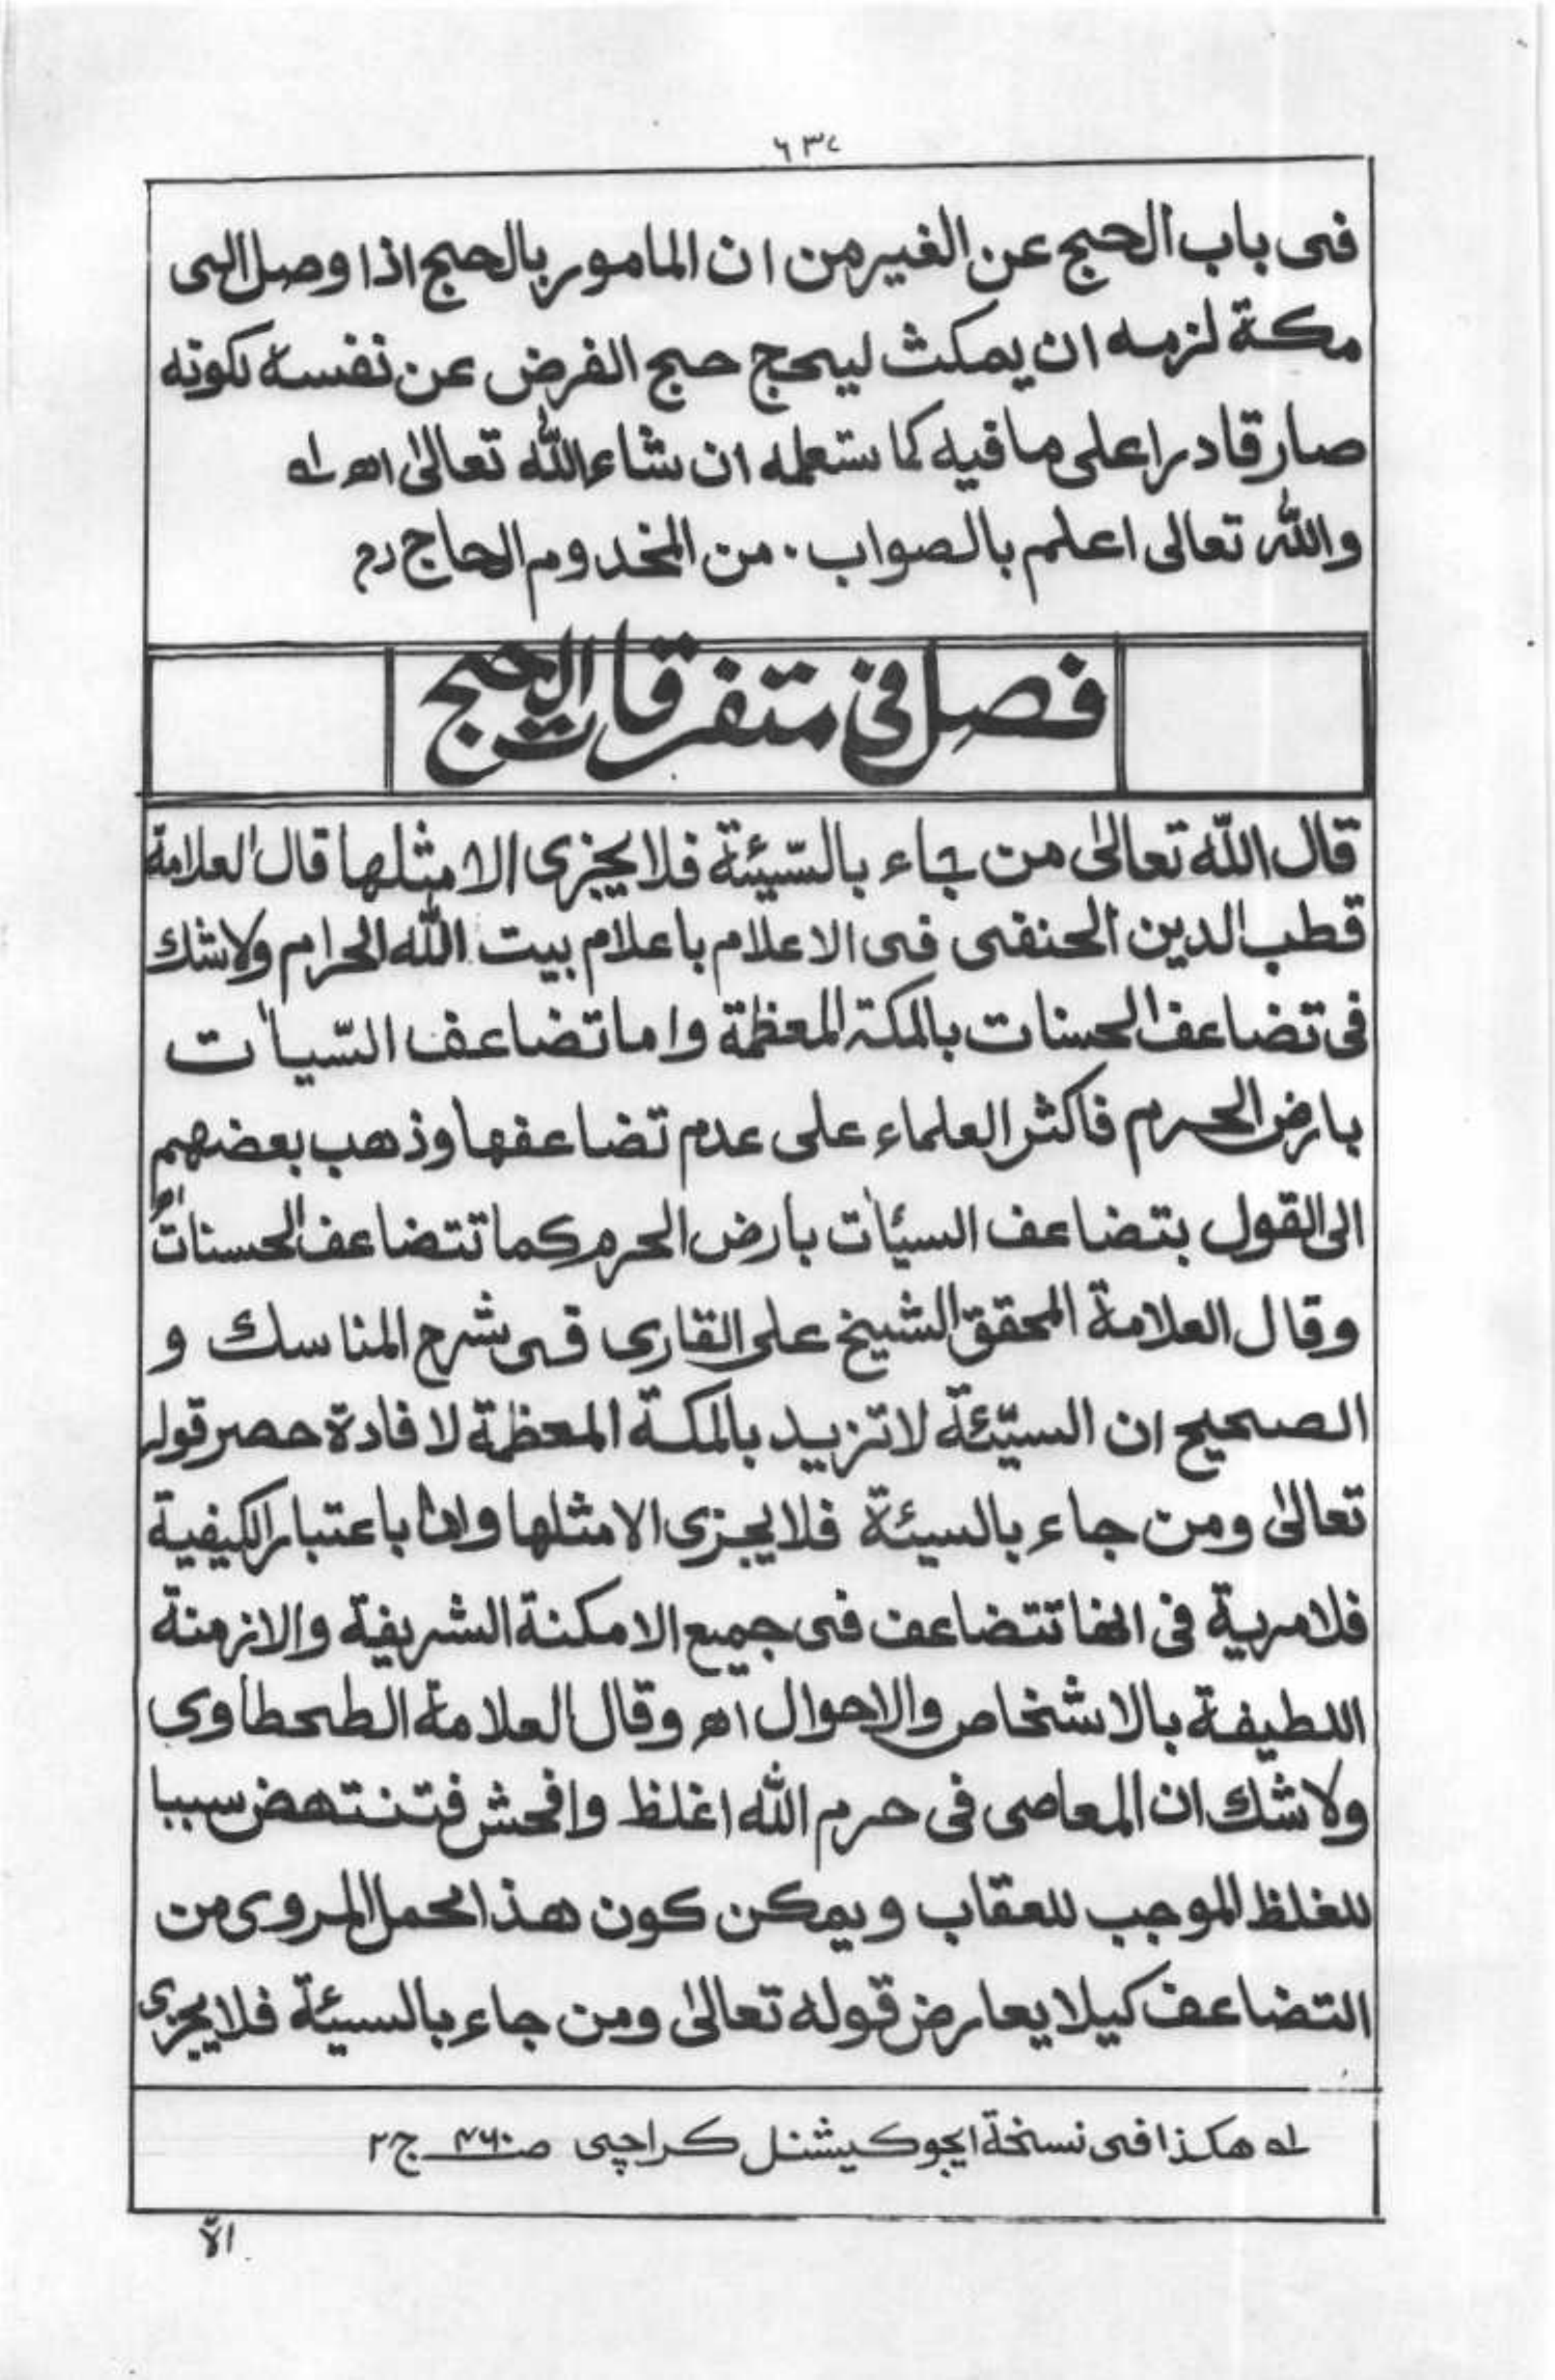 ٦٣٧
فى باب الحج عن الغير من ان المامور بالحج اذا وصل الى
مكة لزمه ان يمكث ليحج حج الفرض عن نفسه لكونه
صار قادرا على ما فيه كما ستعلمه ان شاء الله تعالىٰ اهـ له
والله تعالى اعلم بالصواب . من المخدوم الحاج رح
فصل فى متفرقات الحج
قال الله تعالىٰ من جاء بالسّيئة فلا يجزى الا مثلها قال العلامة
قطب الدين الحنفى فى الاعلام باعلام بيت الله الحرام ولا شك
فى تضاعف الحسنات بالمكة المعظمة واما تضاعف السّيات
بارض الحرم فاكثر العلماء على عدم تضاعفها وذهب بعضهم
الى القول بتضاعف السيئات بارض الحرم كما تتضاعف الحسنات اهـ
وقال العلامة المحقق الشيخ على القارى فى شرح المناسك و
الصحيح ان السيّئة لا تزيد بالمكة المعظمة لافادة حصر قوله
تعالىٰ ومن جاء بالسيئة فلا يجزى الا مثلها واما باعتبار الكيفية
فلا مرية فى انها تتضاعف فى جميع الامكنة الشريفة والازمنة
اللطيفة بالاشخاص والاحوال اهـ وقال العلامة الطحطاوى
ولا شك ان المعاصى فى حرم الله اغلظ وافحش فتنتهض سببا
للغلظ الموجب للعقاب ويمكن كون هذا محمل المروى من
التضاعف كيلا يعارض قوله تعالىٰ ومن جاء بالسيئة فلا يجزى
له هكذا فى نسخة ايجوكيشنل كراچى صـ ٤٦٠ ج ٢
الا